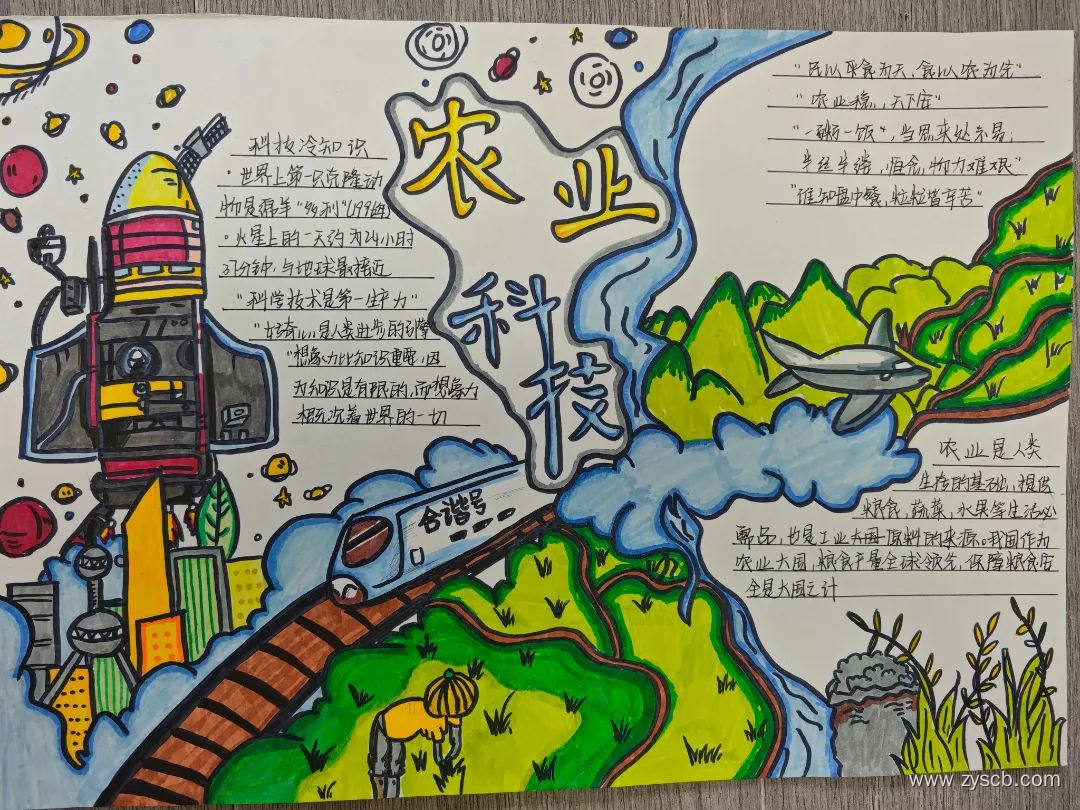 农业
科技
科技冷知识
·世界上第一只克隆动
物是绵羊"多利"(1996年)
·火星上的一天约为24小时
37分钟,与地球最接近
"科学技术是第一生产力"
"好奇心,是人类进步的引擎
"想象力比知识重要,因
为知识是有限的,而想象力
概括着世界的一切
"民以食为天,食以农为先"
"农业稳,天下安"
"一粥一饭",当思来处不易;
半丝半缕,恒念物力难艰"
"谁知盘中餐,粒粒皆辛苦"
合谐号
农业是人类
生存的基础,提供
粮食,蔬菜,水果等生活必
需品,也是工业大国原料的来源。我国作为
农业大国,粮食产量全球领先,保障粮食安
全是大国之计
www.zyscb.com